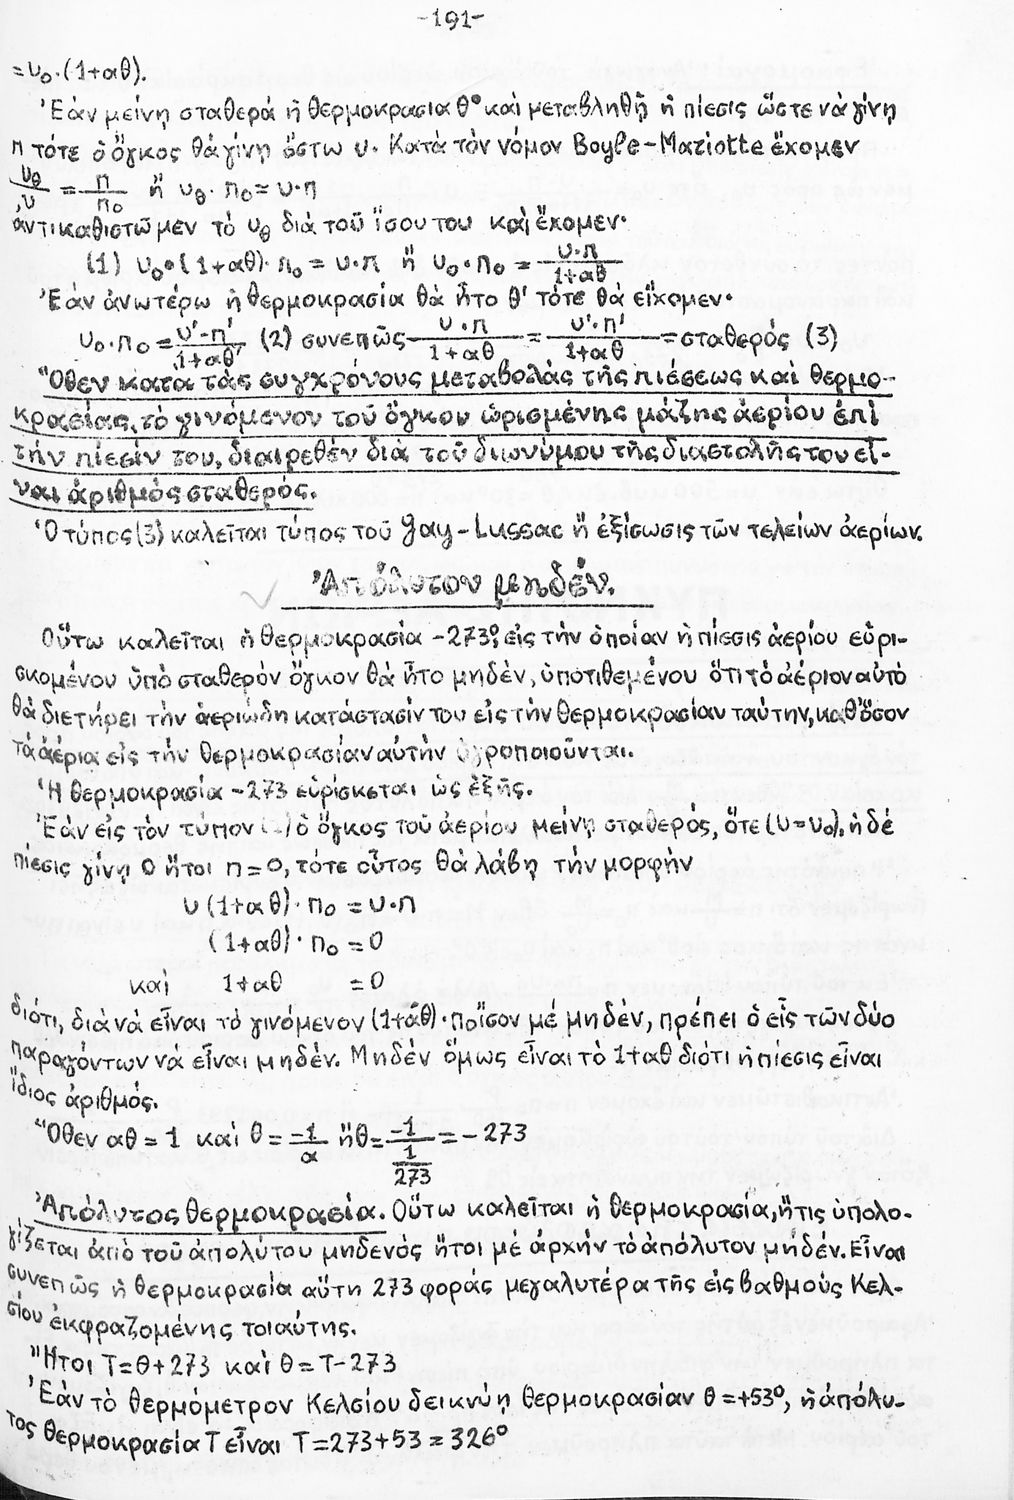 -191-
=υ₀·(1+αθ).
Ἐὰν μείνῃ σταθερά ἡ θερμοκρασία θ° καὶ μεταβληθῇ ἡ πίεσις ὥστε νὰ γίνῃ
π τότε ὁ ὄγκος θὰ γίνῃ ἔστω υ. Κατὰ τὸν νόμον Boyle-Mariotte ἔχομεν
υθ/υ = π/π₀ ἤ υθ· π₀ = υ·π
ἀντικαθιστῶμεν τὸ υθ διὰ τοῦ ἴσου του καὶ ἔχομεν·
(1) υ₀·(1+αθ)· π₀ = υ·π ἤ υ₀·π₀ = υ·π/1+αθ
Ἐὰν ἀνωτέρω ἡ θερμοκρασία θὰ ἦτο θ' τότε θὰ εἴχομεν·
υ₀·π₀ = υ'-π'/1+αθ' (2) συνεπῶς υ·π/1+αθ = υ'·π'/1+αθ = σταθερός (3)
Ὅθεν κατὰ τὰς συγχρόνους μεταβολὰς τῆς πιέσεως καὶ θερμο-
κρασίας, τὸ γινόμενον τοῦ ὄγκου ὡρισμένης μάζης ἀερίου ἐπὶ
τὴν πίεσίν του, διαιρεθέν διὰ τοῦ διωνύμου τῆς διαστολῆς του εἶ-
ναι ἀριθμὸς σταθερός.
Ὁ τύπος (3) καλεῖται τύπος τοῦ Gay-Lussac ἤ ἐξίσωσις τῶν τελείων ἀερίων.
Ἀπόλυτον μηδέν.
Οὕτω καλεῖται ἡ θερμοκρασία -273°, εἰς τὴν ὁποίαν ἡ πίεσις ἀερίου εὑρι-
σκομένου ὑπὸ σταθερόν ὄγκον θὰ ἦτο μηδέν, ὑποτιθεμένου ὅτι τὸ ἀέριον αὐτὸ
θὰ διετήρει τὴν ἀεριώδη κατάστασίν του εἰς τὴν θερμοκρασίαν ταύτην, καθ' ὅσον
τὰ ἀέρια εἰς τὴν θερμοκρασίαν αὐτὴν ὑγροποιοῦνται.
Ἡ θερμοκρασία -273 εὑρίσκεται ὡς ἑξῆς.
Ἐὰν εἰς τὸν τύπον ὁ ὄγκος τοῦ ἀερίου μείνῃ σταθερός, ὅτε (υ=υ₀), ἡ δέ
πίεσις γίνῃ 0 ἤτοι π=0, τότε οὗτος θὰ λάβῃ τὴν μορφήν
υ (1+αθ)· π₀ = υ·π
(1+αθ)· π₀ = 0
καὶ 1+αθ = 0
διότι, διὰ νὰ εἶναι τὸ γινόμενον (1+αθ)·π₀ ἴσον μέ μηδέν, πρέπει ὁ εἷς τῶν δύο
παραγόντων νὰ εἶναι μηδέν. Μηδέν ὅμως εἶναι τὸ 1+αθ διότι ἡ πίεσις εἶναι
ἴδιος ἀριθμός.
Ὅθεν αθ = 1 καὶ θ = -1/α ἤ θ = -1/(1/273) = - 273
Ἀπόλυτος θερμοκρασία. Οὕτω καλεῖται ἡ θερμοκρασία, ἥτις ὑπολο-
γίζεται ἀπὸ τοῦ ἀπολύτου μηδενὸς ἤτοι μὲ ἀρχὴν τὸ ἀπόλυτον μηδέν. Εἶναι
συνεπῶς ἡ θερμοκρασία αὕτη 273 φοράς μεγαλυτέρα τῆς εἰς βαθμοὺς Κελ-
σίου ἐκφραζομένης τοιαύτης.
Ἤτοι Τ=θ+273 καὶ θ=Τ-273
Ἐὰν τὸ θερμόμετρον Κελσίου δεικνύῃ θερμοκρασίαν θ=+53°, ἡ ἀπόλυ-
τος θερμοκρασία Τ εἶναι Τ=273+53=326°